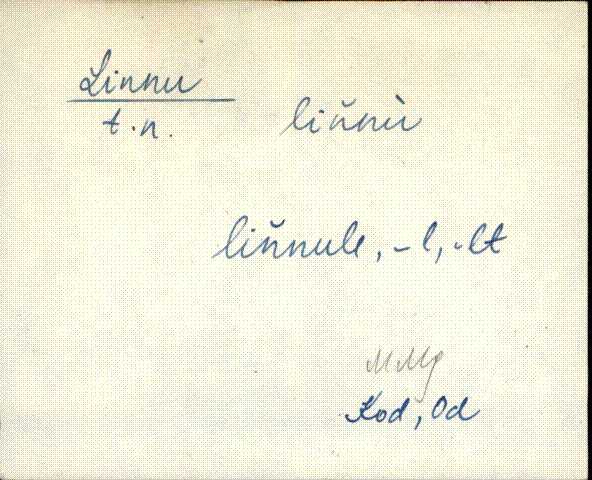 Linnu
t.n.
liňnù
liňnule, -l, -lt
MMg
Kod, Od